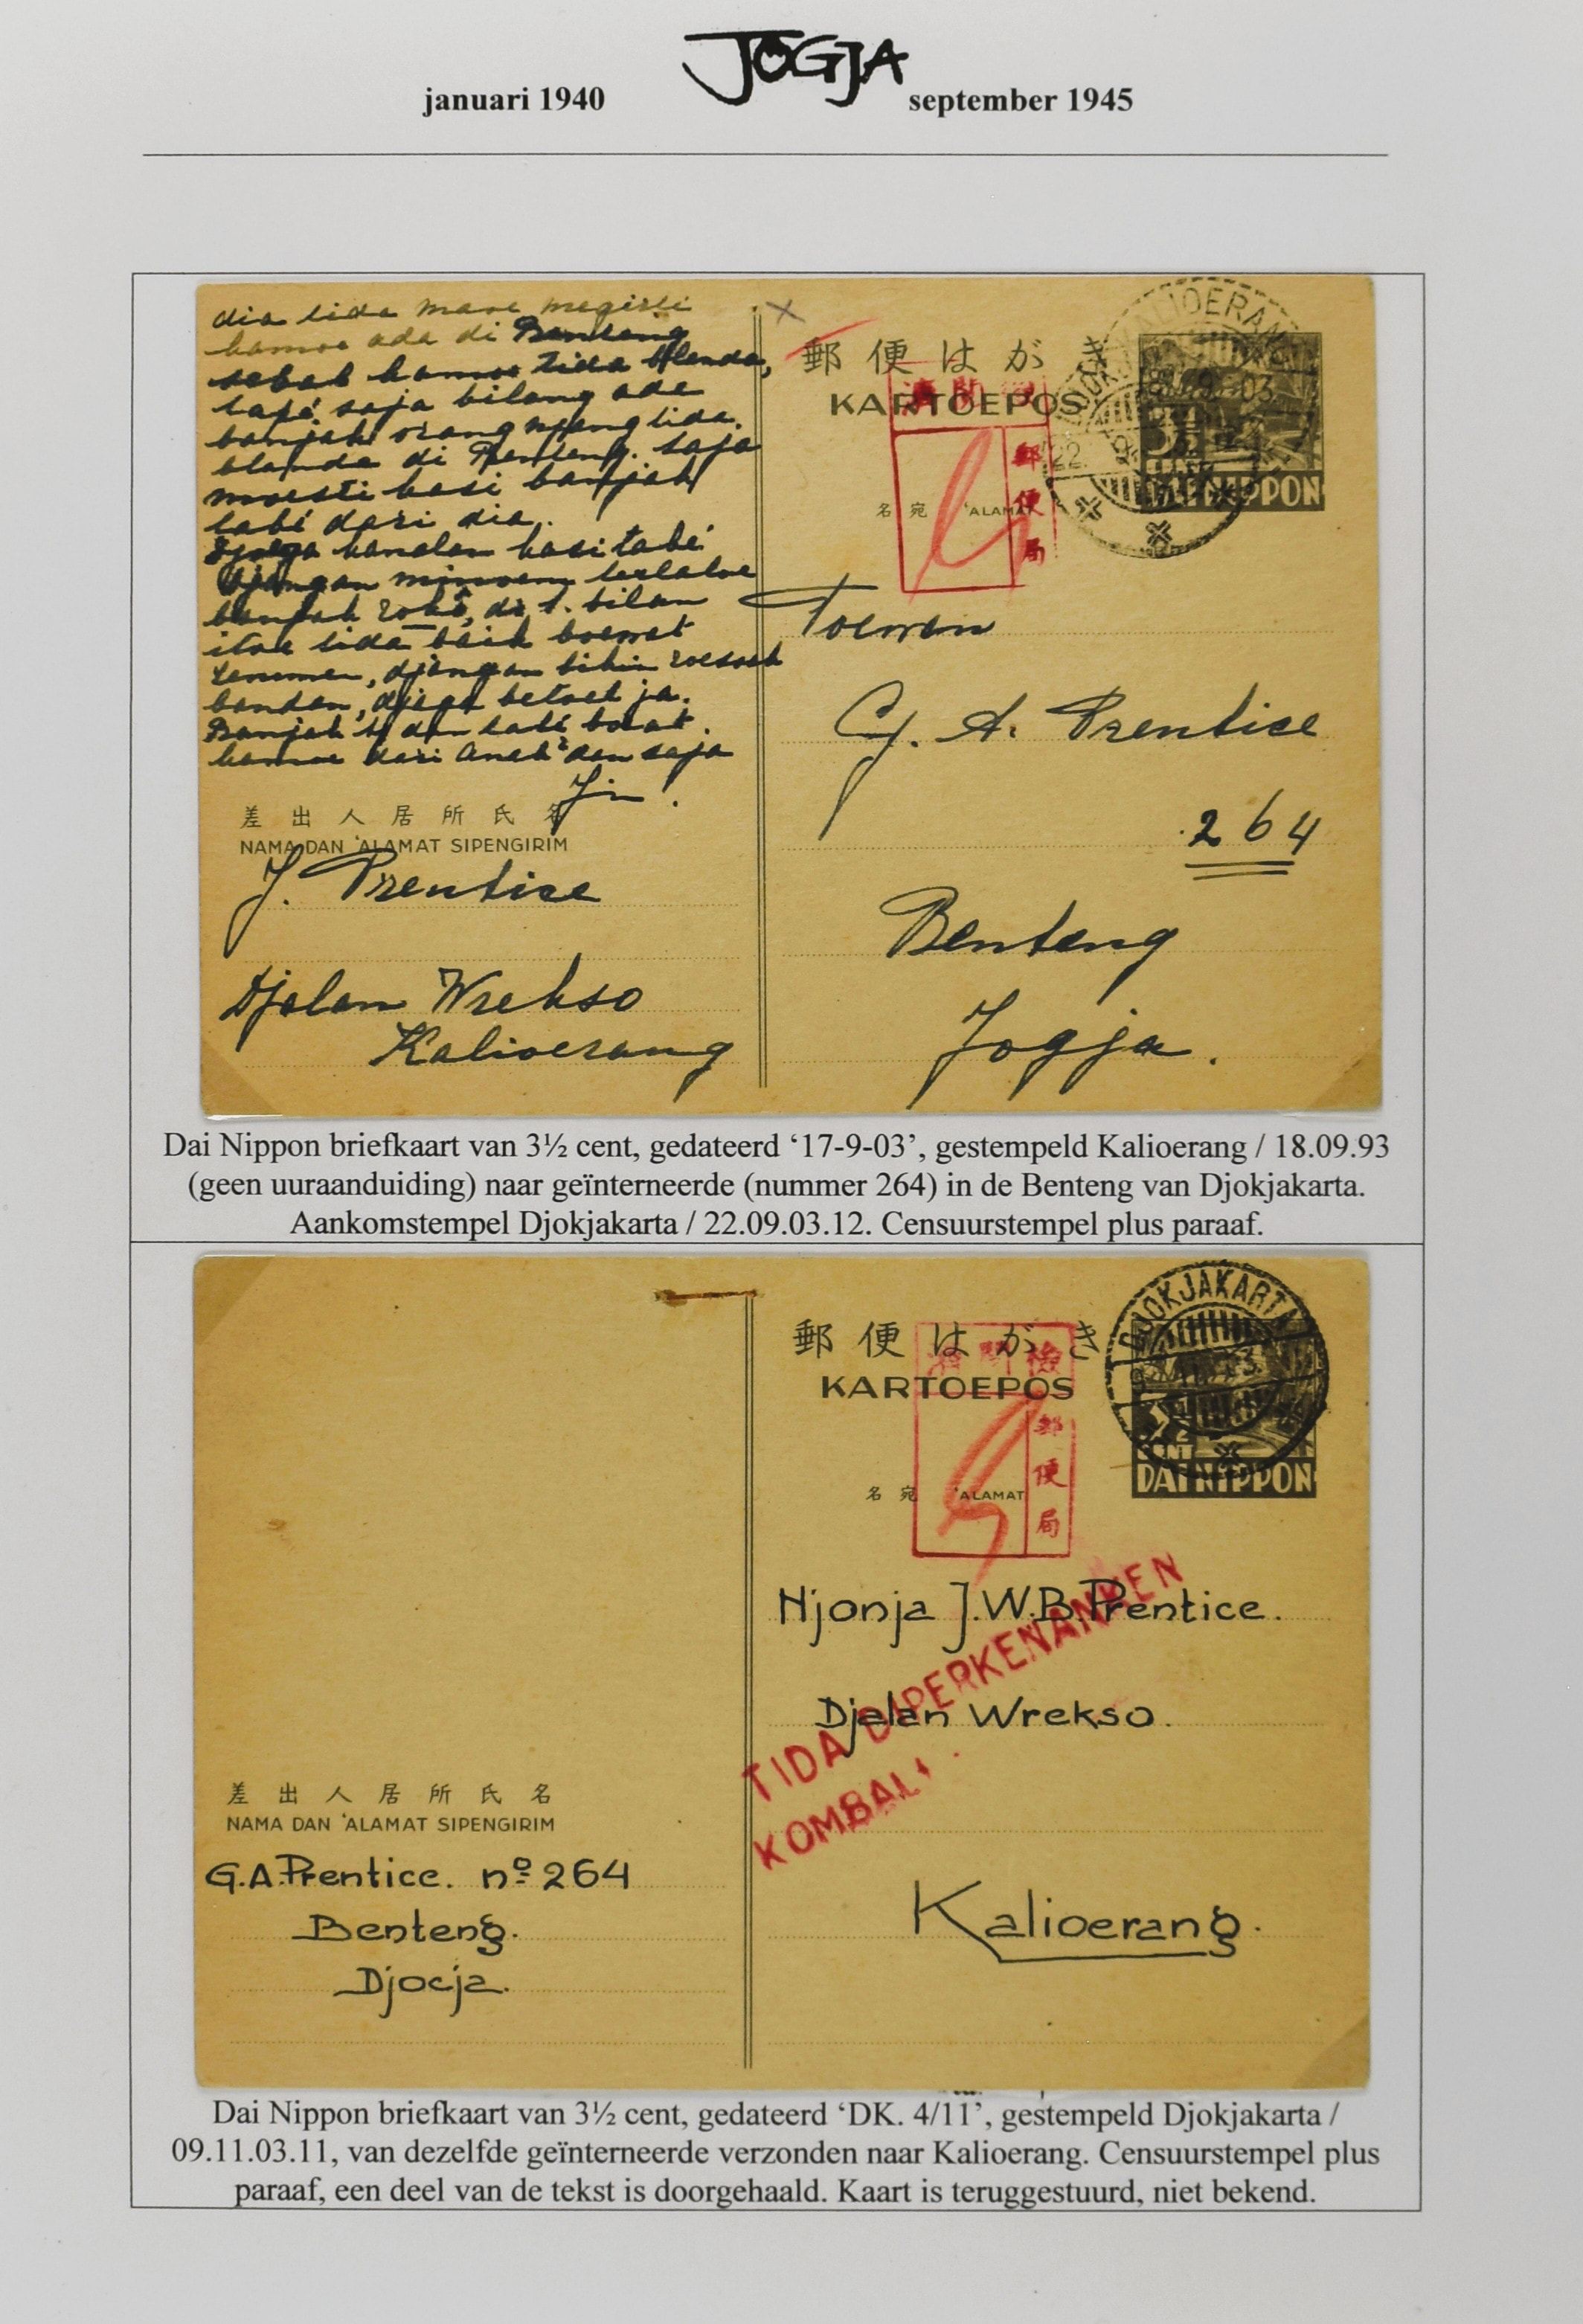 JOGJA
januari 1940 september 1945
dia tida maoe megirti
kamoe ada di Benteng
sebab kamoe tida Blanda,
tapi saja bilang ada
banjak orang njang tida
blanda di Benteng. Saja
moesti kasi banjak
tabé dari dia.
Djoega kanalan kasi tabé
Djangan minoem terlaloe
banjak , dr. t. bilan
itoe tida baik boewat
, djangan bikin roesak
bandan, djaga betoel ja.
Banjak dan tabé boeat
kamoe dari anak² dan saja
郵便はがき
KARTOEPOS
郵便局
名宛 'ALAMAT
KALIOERANG
DJOKJAKARTA
22. 9. 03. 12
DAI NIPPON
差出人居所氏名
NAMA DAN 'ALAMAT SIPENGIRIM
J. Prentice
Djalan Wrekso
Kalioerang
Toewan
G. A. Prentice
264
Benteng
Jogja.
Dai Nippon briefkaart van 3½ cent, gedateerd ‘17-9-03’, gestempeld Kalioerang / 18.09.93
(geen uuraanduiding) naar geïnterneerde (nummer 264) in de Benteng van Djokjakarta.
Aankomstempel Djokjakarta / 22.09.03.12. Censuurstempel plus paraaf.
郵便はがき
KARTOEPOS
検閲済
郵便局
名宛 'ALAMAT
DJOKJAKARTA
3½ CENT
DAI NIPPON
Njonja J.W.B. Prentice.
Djalan Wrekso.
TIDA DIPERKENANKEN
KOMBALI.
Kalioerang.
差出人居所氏名
NAMA DAN 'ALAMAT SIPENGIRIM
G.A. Prentice. nº 264
Benteng.
Djocja.
Dai Nippon briefkaart van 3½ cent, gedateerd ‘DK. 4/11’, gestempeld Djokjakarta /
09.11.03.11, van dezelfde geïnterneerde verzonden naar Kalioerang. Censuurstempel plus
paraaf, een deel van de tekst is doorgehaald. Kaart is teruggestuurd, niet bekend.